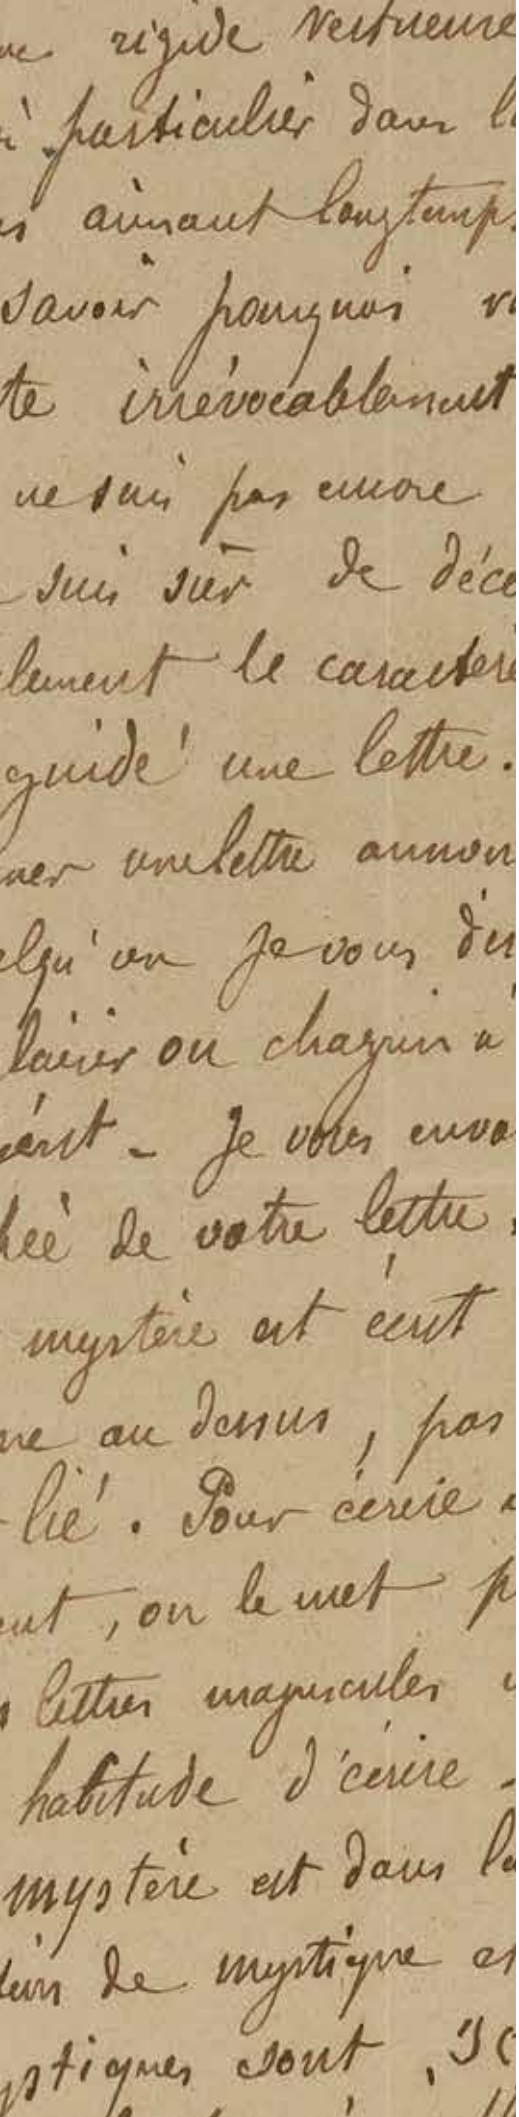 rigide vertueuse
particulier dans l
aimant longtemps
savoir pourquoi v
te irrévocablement
ne suis pas encore
suis sûr de déce
lement le caractère
guidé une lettre.
ner une lettre annon
elqu'un Je vous dis
laisir ou chagrin à
Je vous envo
de votre lettre.
mystère est écrit
ne au dessus, pas
lié. Pour écrire
ent, on le met p
lettres majuscules
habitude d'écrire -
mystère est dans la
de mystique e
ystiques sont